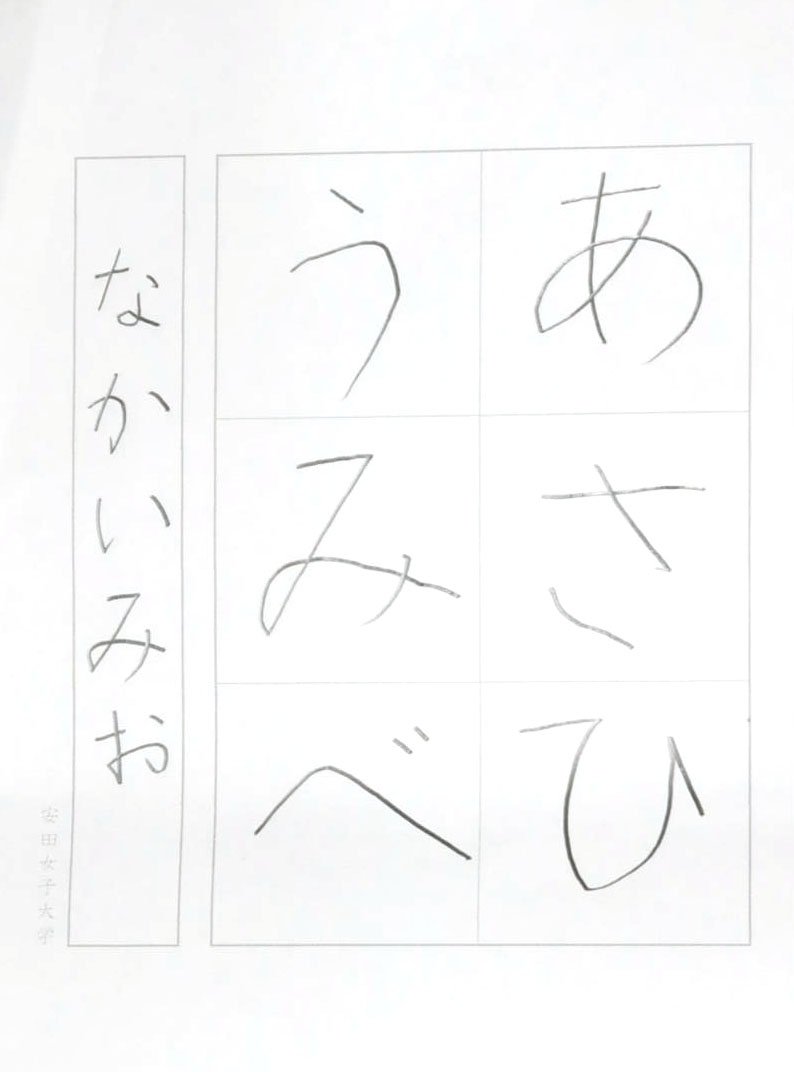 あさひ
うみべ
なかいみお
安田女子大学